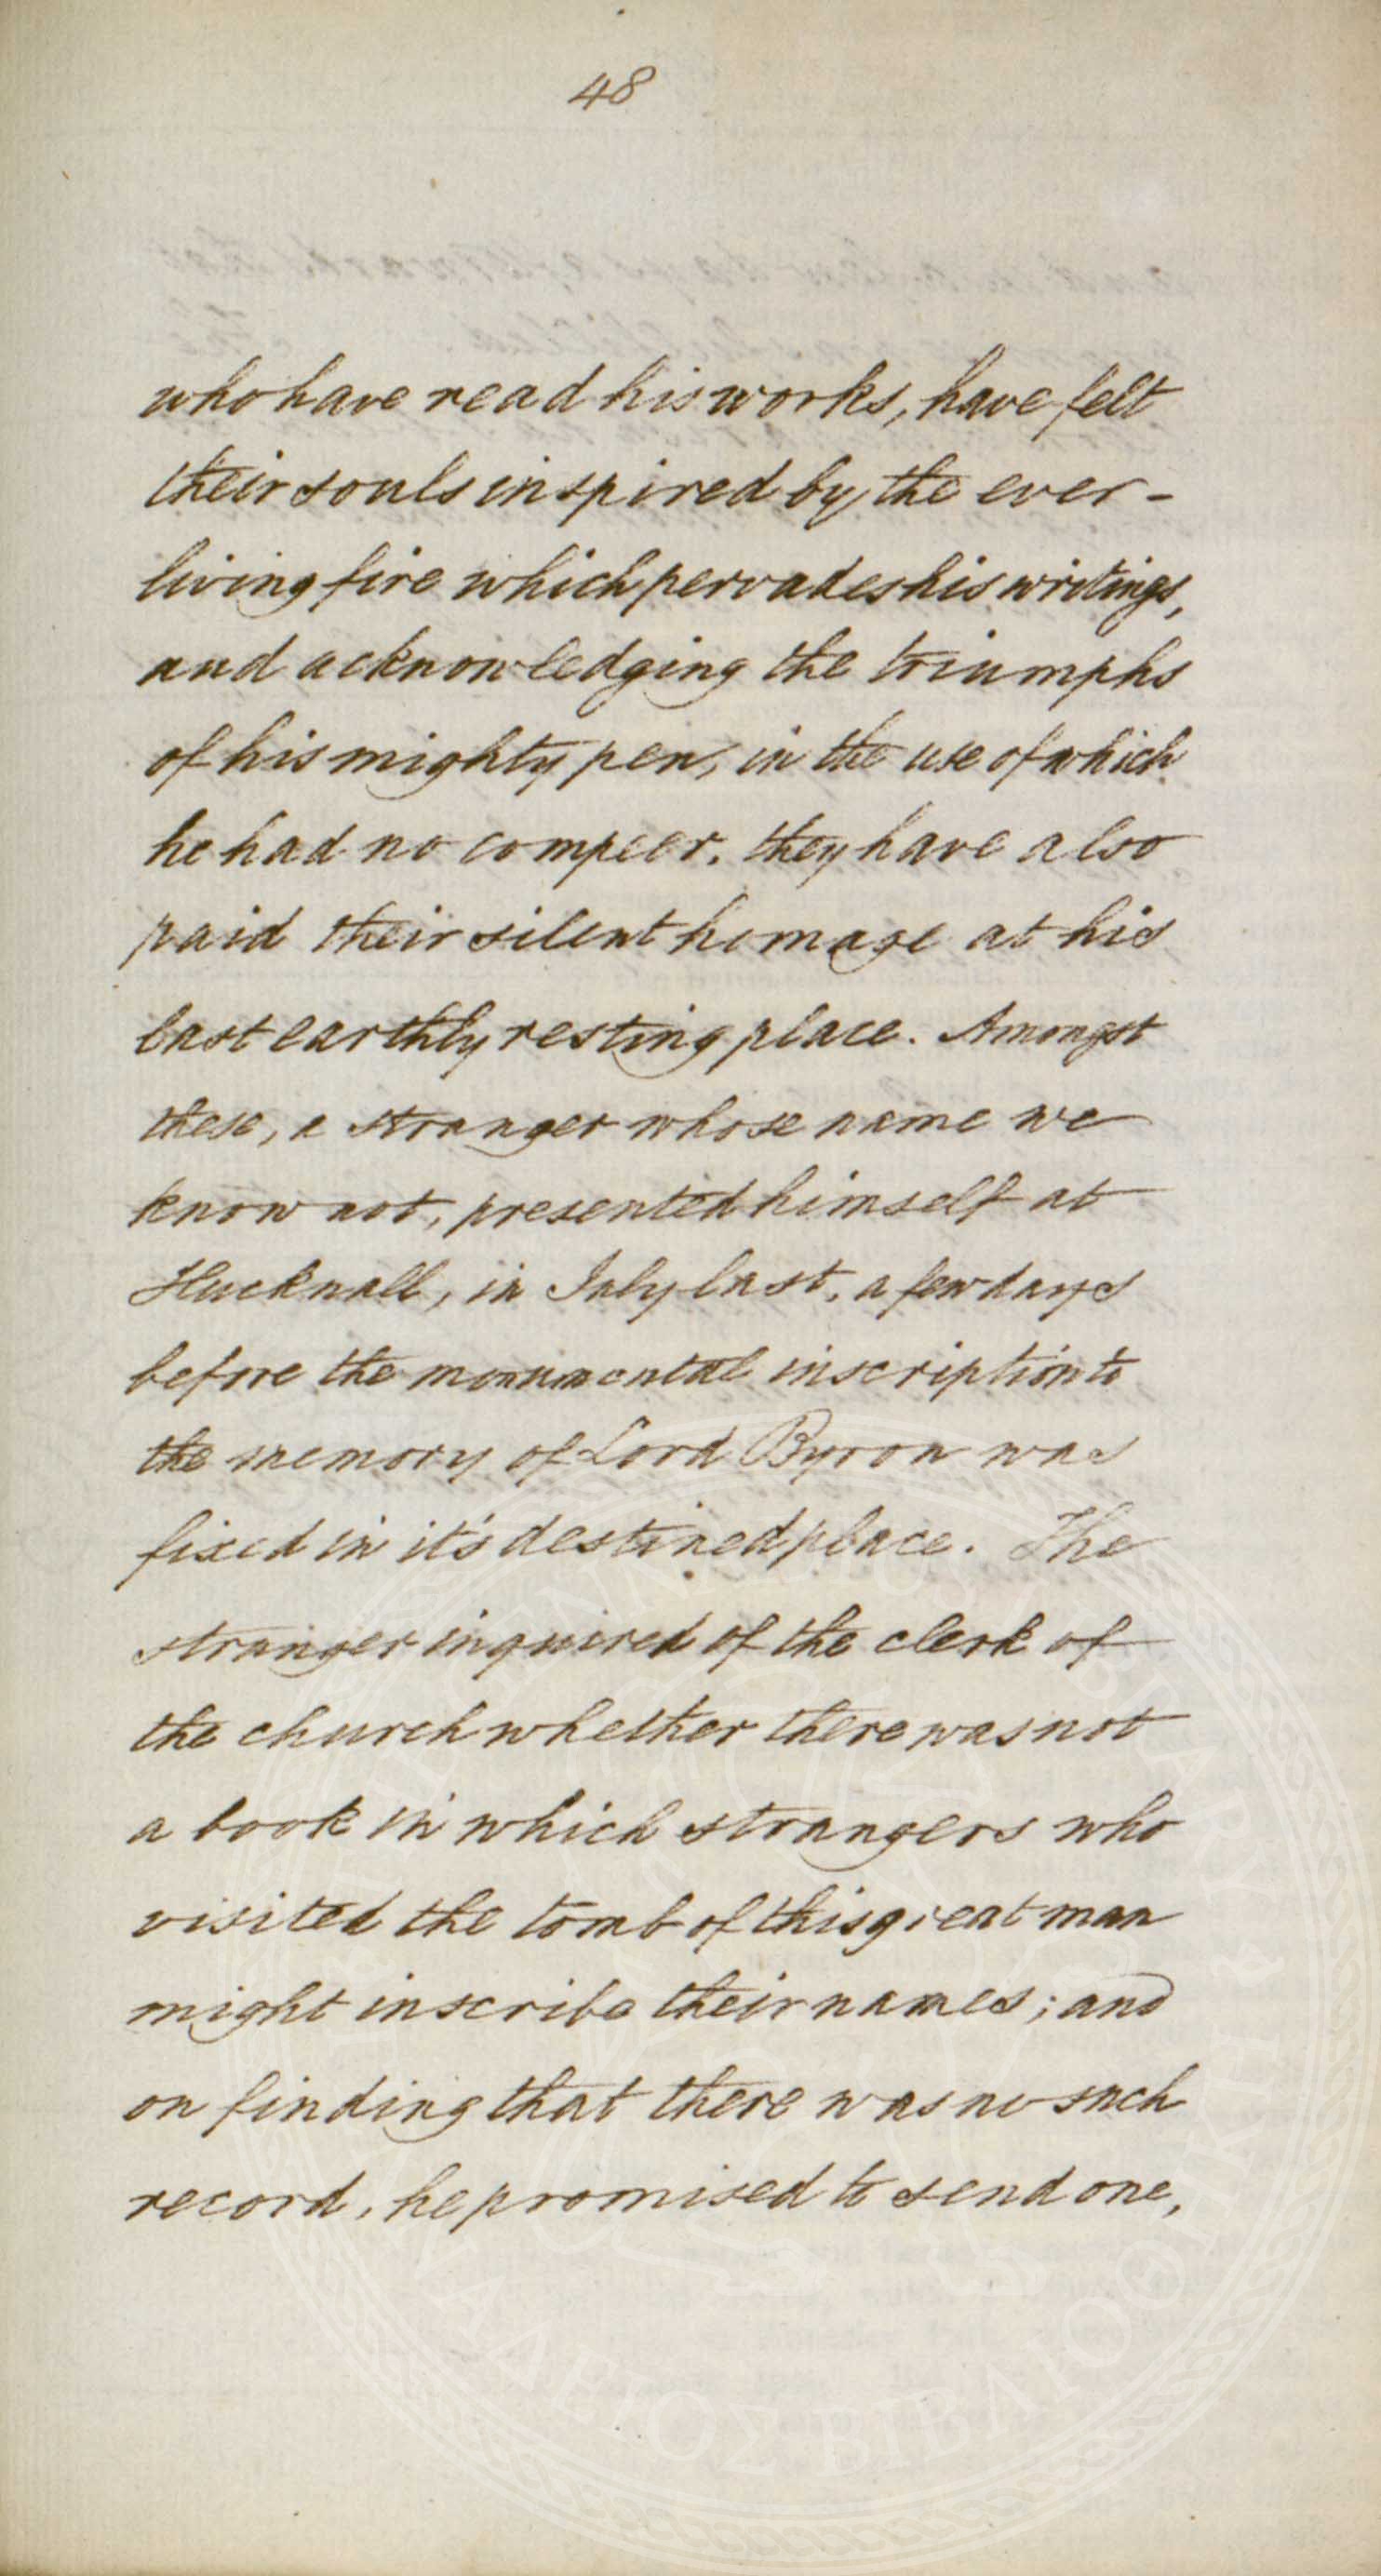 48
who have read his works, have felt
their souls inspired by the ever-
living fire which pervades his writings,
and acknowledging the triumphs
of his mighty pen, in the use of which
he had no compeer. they have also
paid their silent homage at his
last earthly resting place. Amongst
these, a stranger whose name we
know not, presented himself at
Hucknall, in July last, a few days
before the monumental inscription to
the memory of Lord Byron was
fixed in it's destined place. The
stranger inquired of the clerk of
the church whether there was not
a book in which strangers who
visited the tomb of this great man
might inscribe their names; and
on finding that there was no such
record, he promised to send one,